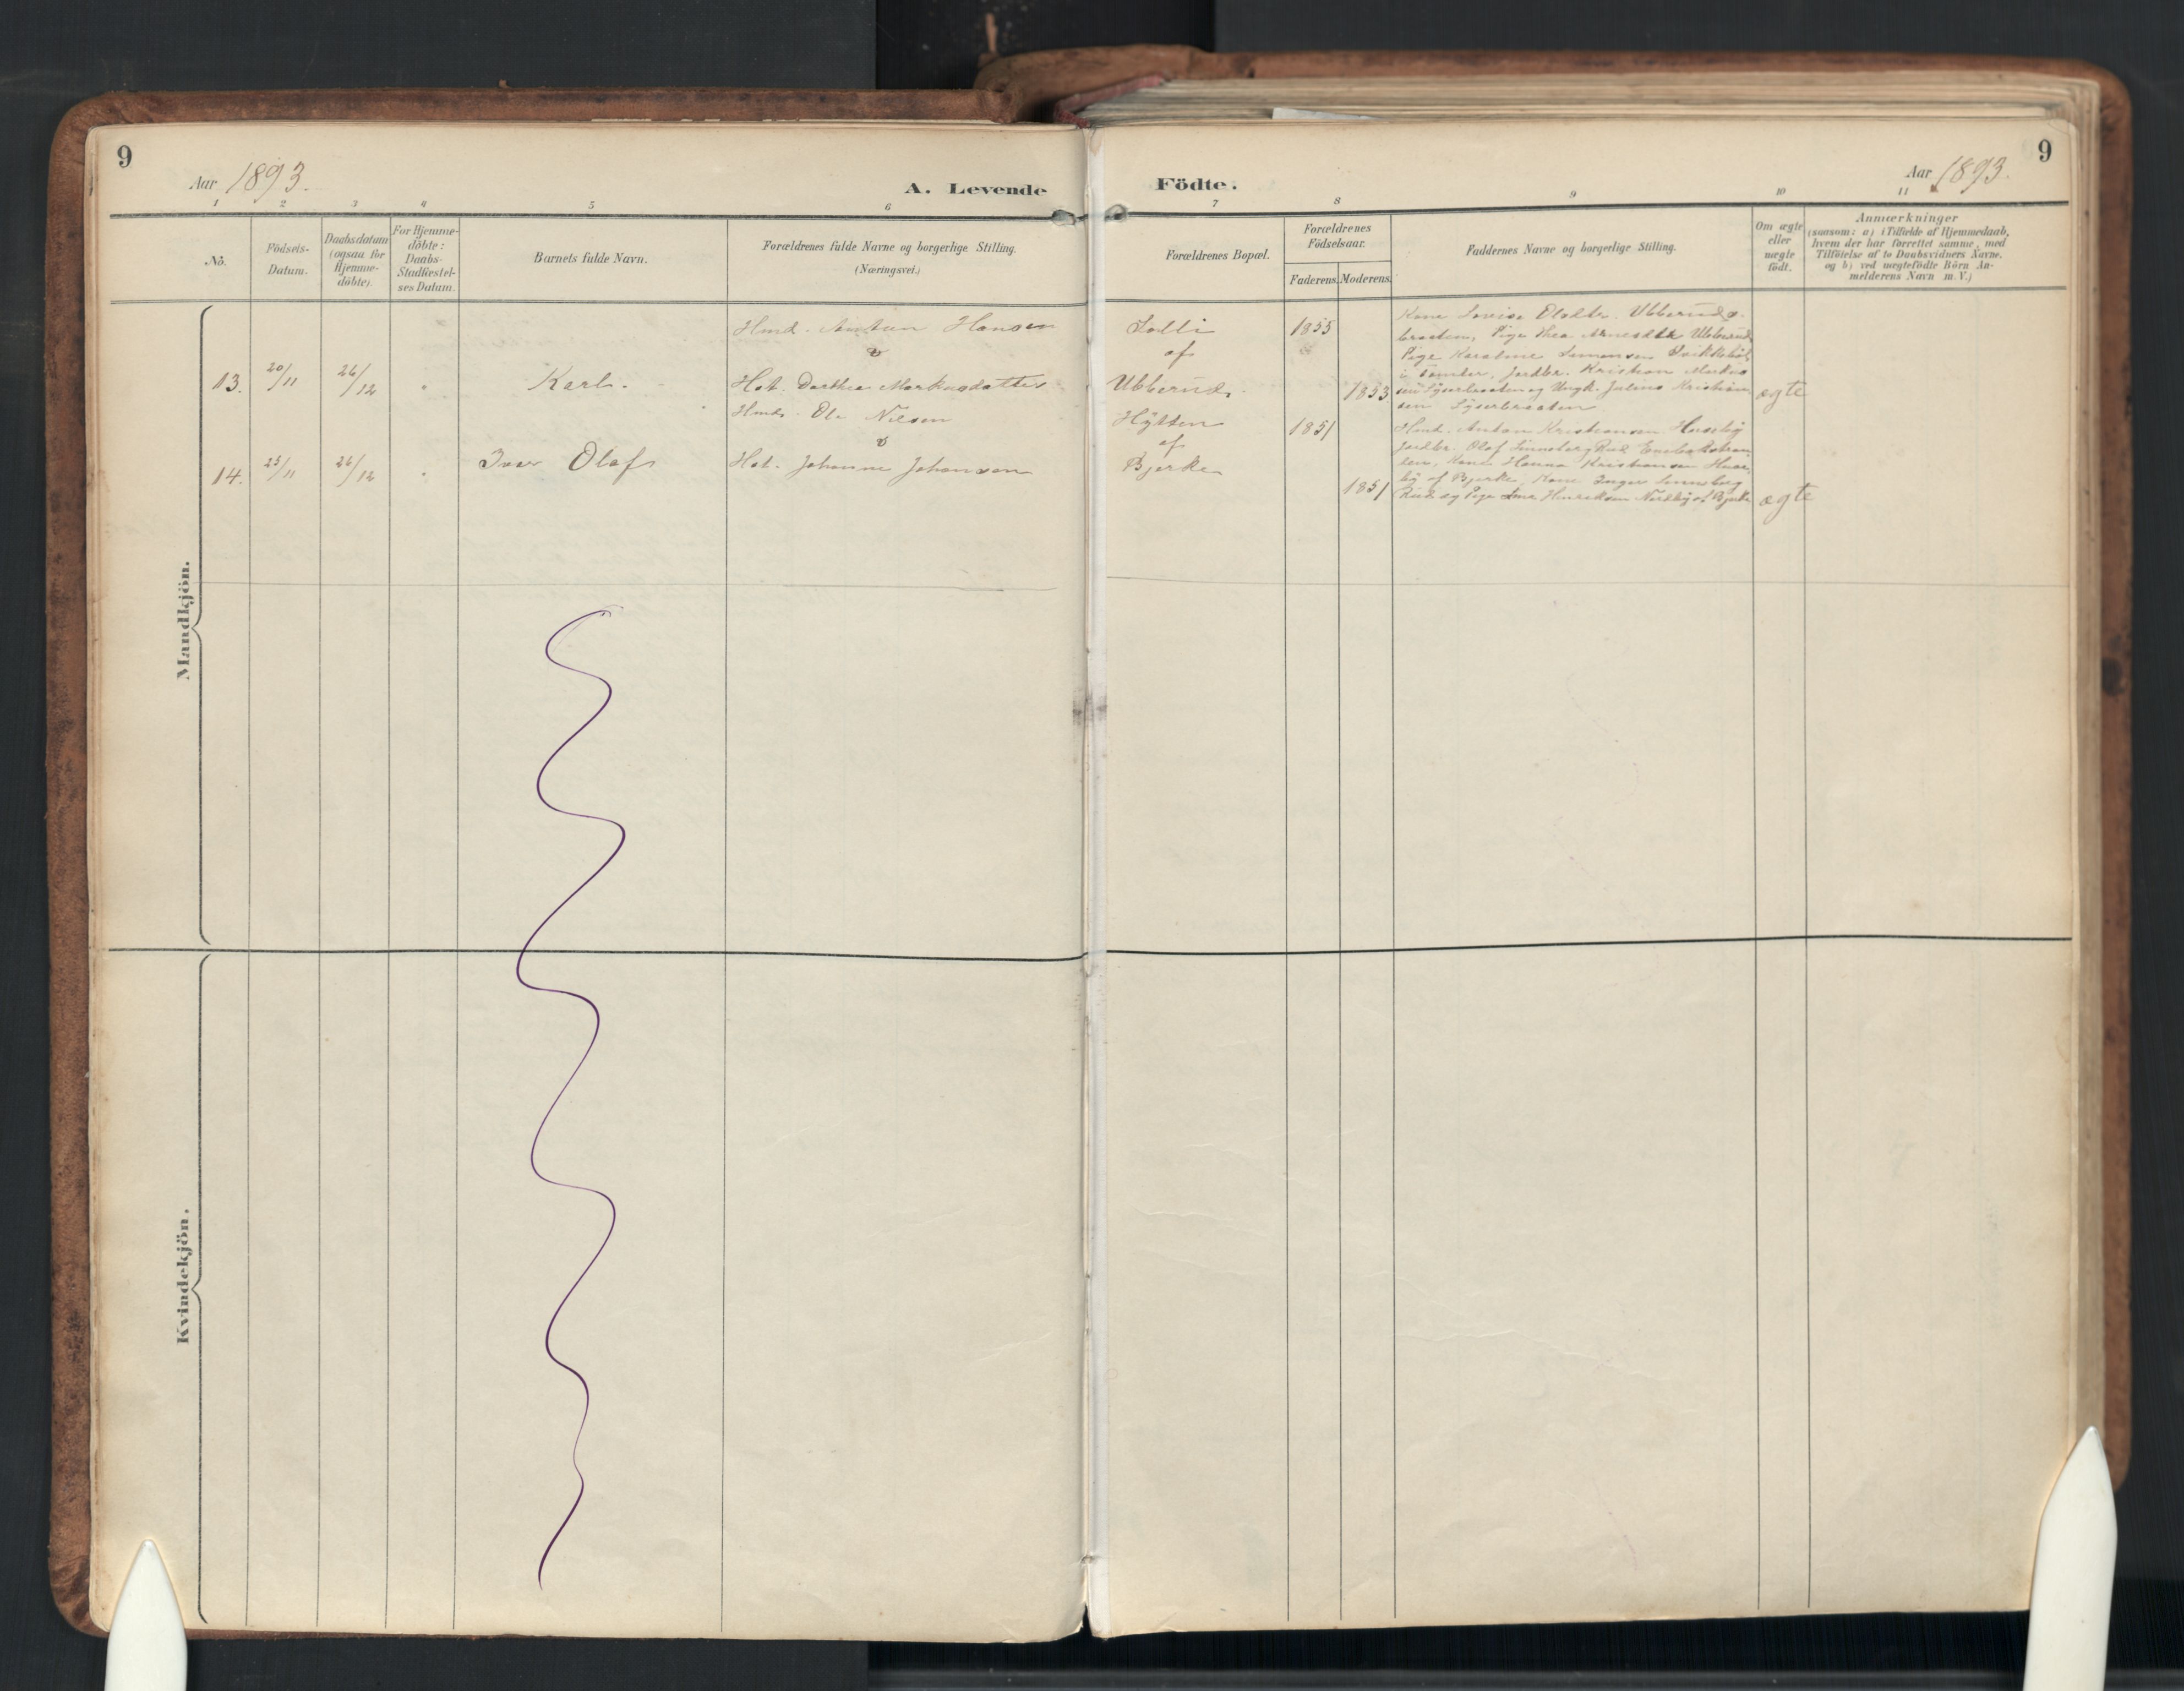 9
Aar 1893.
A. Levende
Födte.
Aar 1893.
9
1 2 3 4 5 6 7 8 9 10 11
Nō.
Födsels-
Datum.
Daabsdatum
(ogsaa for
Hjemme-
döbte).
For Hjemme-
döbte:
Daabs-
Stadfæstel-
ses Datum.
Barnets fulde Navn.
Forældrenes fulde Navne og borgerlige Stilling.
(Næringsvei.)
Forældrenes Bopæl.
Forældrenes
Födselsaar.
Faderens. Moderens.
Faddernes Navne og borgerlige Stilling.
Om ægte
eller
uægte
födt.
Anmærkninger
(saasom: a) i Tilfælde af Hjemmedaab,
hvem der har forrettet samme, med
Tilföielse af to Daabsvidners Navne.
og b) ved uægtefödte Börn An-
melderens Navn m. V.)
Mandkjön.
13. 20/11 26/12 " Karl.
Hmd. Anton Hansen
&
Hst. Dorthea Markusdatter
Solli
af
Ubberud.
1855
1853
Kone Lovise Olsdtr. Ubberuds
braaten, Pige Thea Arnesdtr Ubberud,
Pige Karoline Simensen
i Tomter, Jordbr. Kristian Markus
sen Lyserbraaten og Ungk. Julius Kristian
sen Lyserbraaten
ægte
14. 23/11 26/12 " Iver Olaf
Hmd. Ole Nilsen
&
Hst. Johanne Johansen
Hytten
af
Bjerke
1851
1851
Hmd. Anton Kristiansen Huseby
Jordbr. Olaf Linneberg Rud
Kone Hanna Kristiansen Huse
by af Bjerke, Kone Inger Linneberg
Rud og Pige Henriksen Nordby af Bjerke
ægte
Kvindekjön.